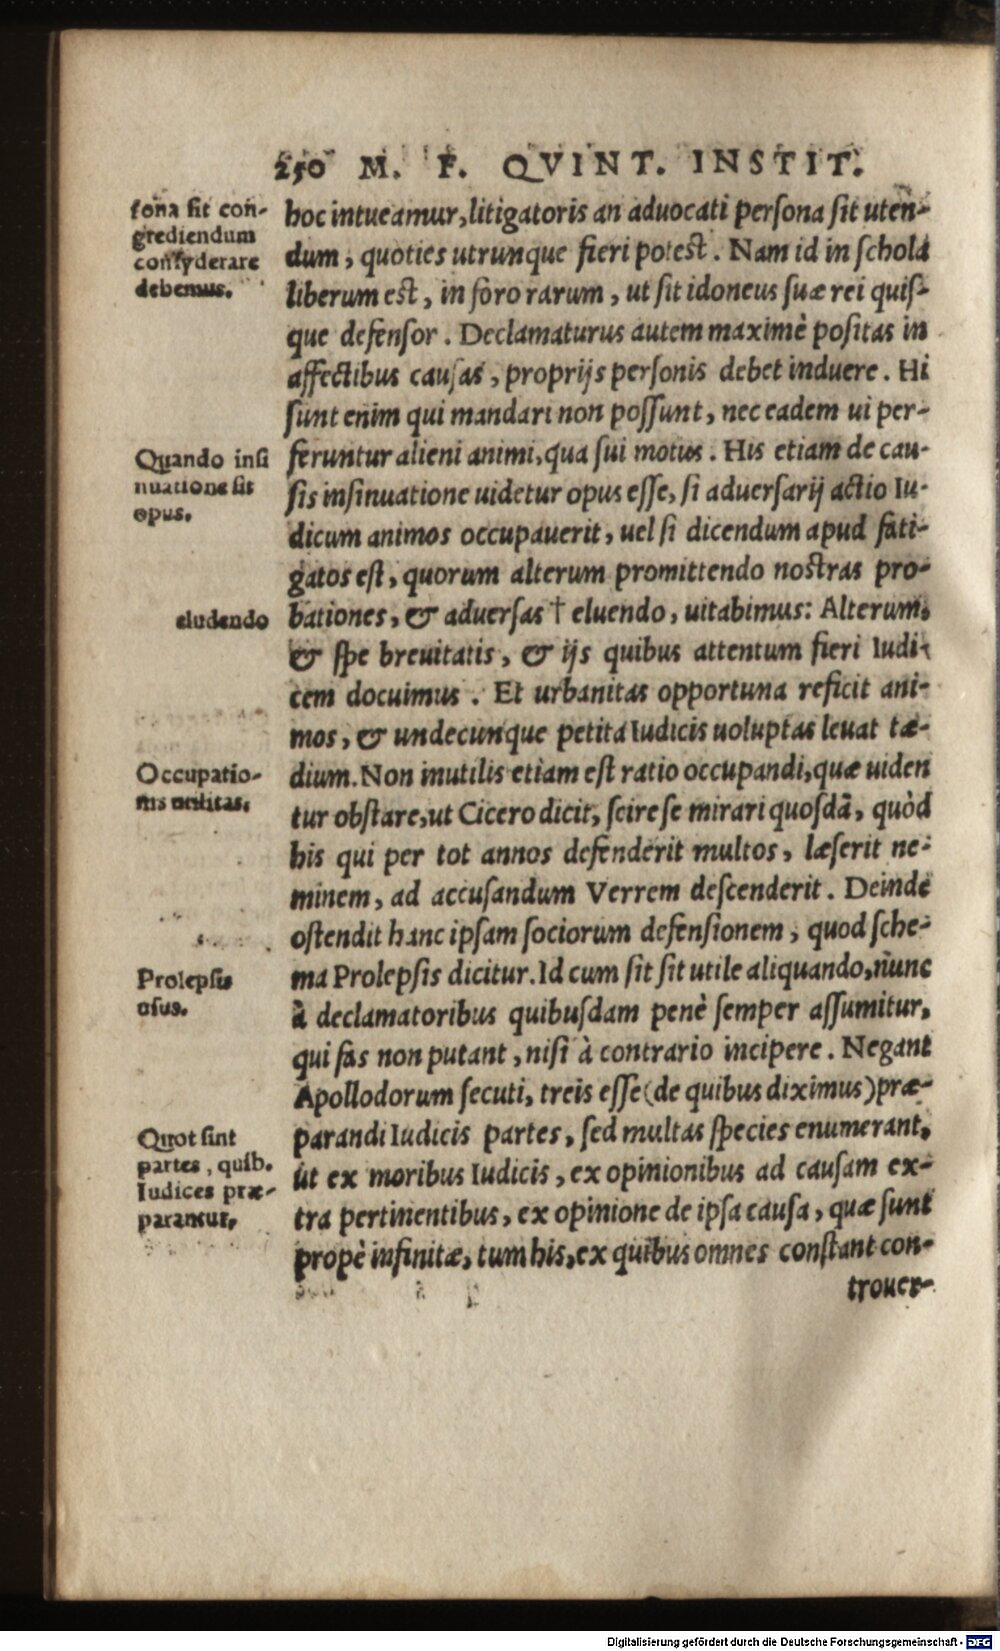 250 M. F. QVINT. INSTIT.
sona sit con-
grediendum
consyderare
debemus.
hoc intueamur, litigatoris an aduocati persona sit uten-
dum, quoties utrunque fieri potest. Nam id in schola
liberum est, in foro rarum, ut sit idoneus suæ rei quis-
que defensor. Declamaturus autem maximè positas in
affectibus causas, proprijs personis debet induere. Hi
sunt enim qui mandari non possunt, nec eadem ui per-
Quando insi
nuatione sit
opus.
feruntur alieni animi, qua sui motus. His etiam de cau-
sis insinuatione uidetur opus esse, si aduersarij actio Iu-
dicum animos occupauerit, uel si dicendum apud fati-
gatos est, quorum alterum promittendo nostras pro-
eludendo
bationes, & aduersas † eluendo, uitabimus: Alterum,
& spe breuitatis, & ijs quibus attentum fieri Iudi-
cem docuimus. Et urbanitas opportuna reficit ani-
mos, & undecunque petita Iudicis uoluptas leuat tæ-
Occupatio-
nis utilitas.
dium. Non inutilis etiam est ratio occupandi, quæ uiden
tur obstare, ut Cicero dicit, scire se mirari quosdā, quòd
his qui per tot annos defenderit multos, læserit ne-
minem, ad accusandum Verrem descenderit. Deinde
ostendit hanc ipsam sociorum defensionem, quod sche-
Prolepsis
usus.
ma Prolepsis dicitur. Id cum sit sit utile aliquando, nunc
à declamatoribus quibusdam penè semper assumitur,
qui fas non putant, nisi à contrario incipere. Negant
Apollodorum secuti, treis esse (de quibus diximus) præ-
Quot sint
partes, quib.
Iudices præ-
parantur.
parandi Iudicis partes, sed multas species enumerant,
ut ex moribus Iudicis, ex opinionibus ad causam ex-
tra pertinentibus, ex opinione de ipsa causa, quæ sunt
propè infinitæ, tum his, ex quibus omnes constant con-
trouer-
Digitalisierung gefördert durch die Deutsche Forschungsgemeinschaft - DFG